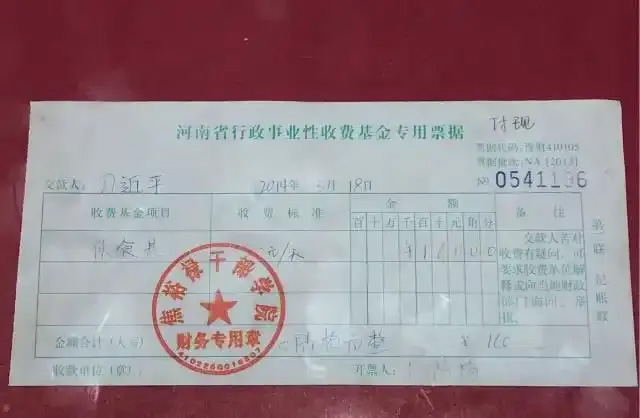 河南省行政事业性收费基金专用票据
付现
票据代码:豫财410105
票据批次:NA [2013]
№ 0541196
交款人:习近平 2014年3月18日
收费基金项目 收费标准 金额 备注
百十万千百十元角分
伙食费 元/天
交款人若对
收费有疑问,可
要求收费单位解
释或向当地财政
部门询问、举
报。
记账联
焦裕禄干部学院
财务专用章
金额合计(大写) 陆拾元整 ¥ 160
收款单位(章): 开票人: